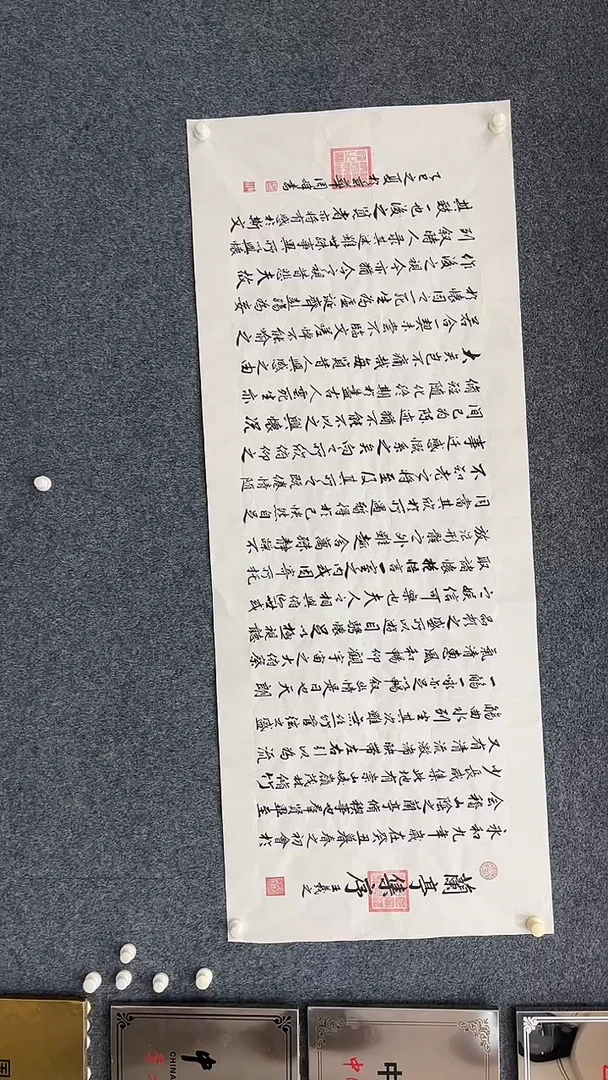 蘭亭集序 王羲之
永和九年歲在癸丑暮春之初會於
会稽山陰之蘭亭脩稧事也群賢畢至
少長咸集此地有崇山峻領茂林脩竹
又有清流激湍映帶左右引以為流
觴曲水列坐其次雖無絲竹管弦之盛
一觴一詠亦足以暢敘幽情是日也天朗
氣清惠風和暢仰觀宇宙之大俯察
品類之盛所以遊目騁懷足以極視聽
之娛信可樂也夫人之相與俯仰一世或
取諸懷抱悟言一室之內或因寄所託
放浪形骸之外雖趣舍萬殊靜躁不
同當其欣於所遇暫得於己快然自足
不知老之將至及其所之既倦情隨
事遷感慨係之矣向之所欣俯仰之
間已為陳迹猶不能不以之興懷況
脩短隨化終期於盡古人云死生亦
大矣豈不痛哉每覽昔人興感之由
若合一契未嘗不臨文嗟悼不能喻之
於懷固知一死生為虛誕齊彭殤為妄
作後之視今亦猶今之視昔悲夫故
列敘時人录其所述雖世殊事異所以興懷
其致一也後之覽者亦將有感於斯文
乙巳之夏於京華周書
中
CHINA
中